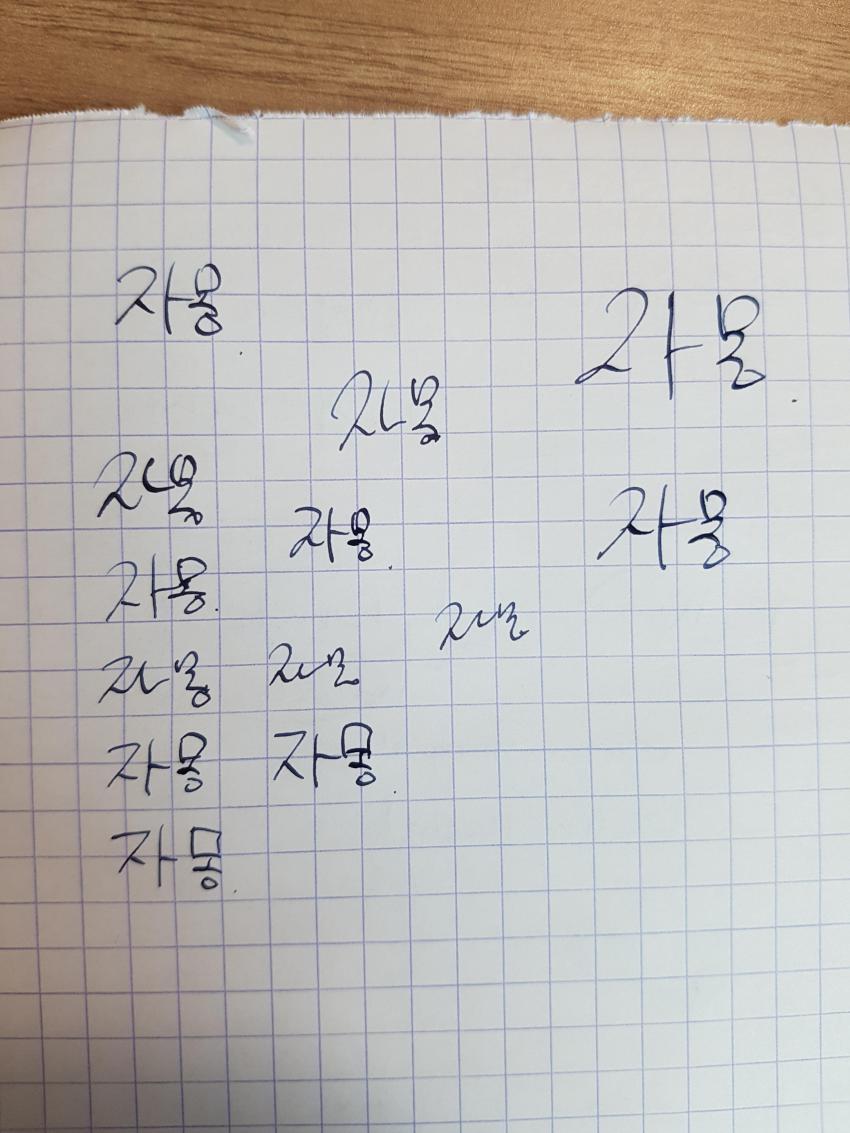 자몽
자몽
자몽
자몽
자몽
자몽
자몽
자몽
자몽
자몽
자몽
자몽
자몽